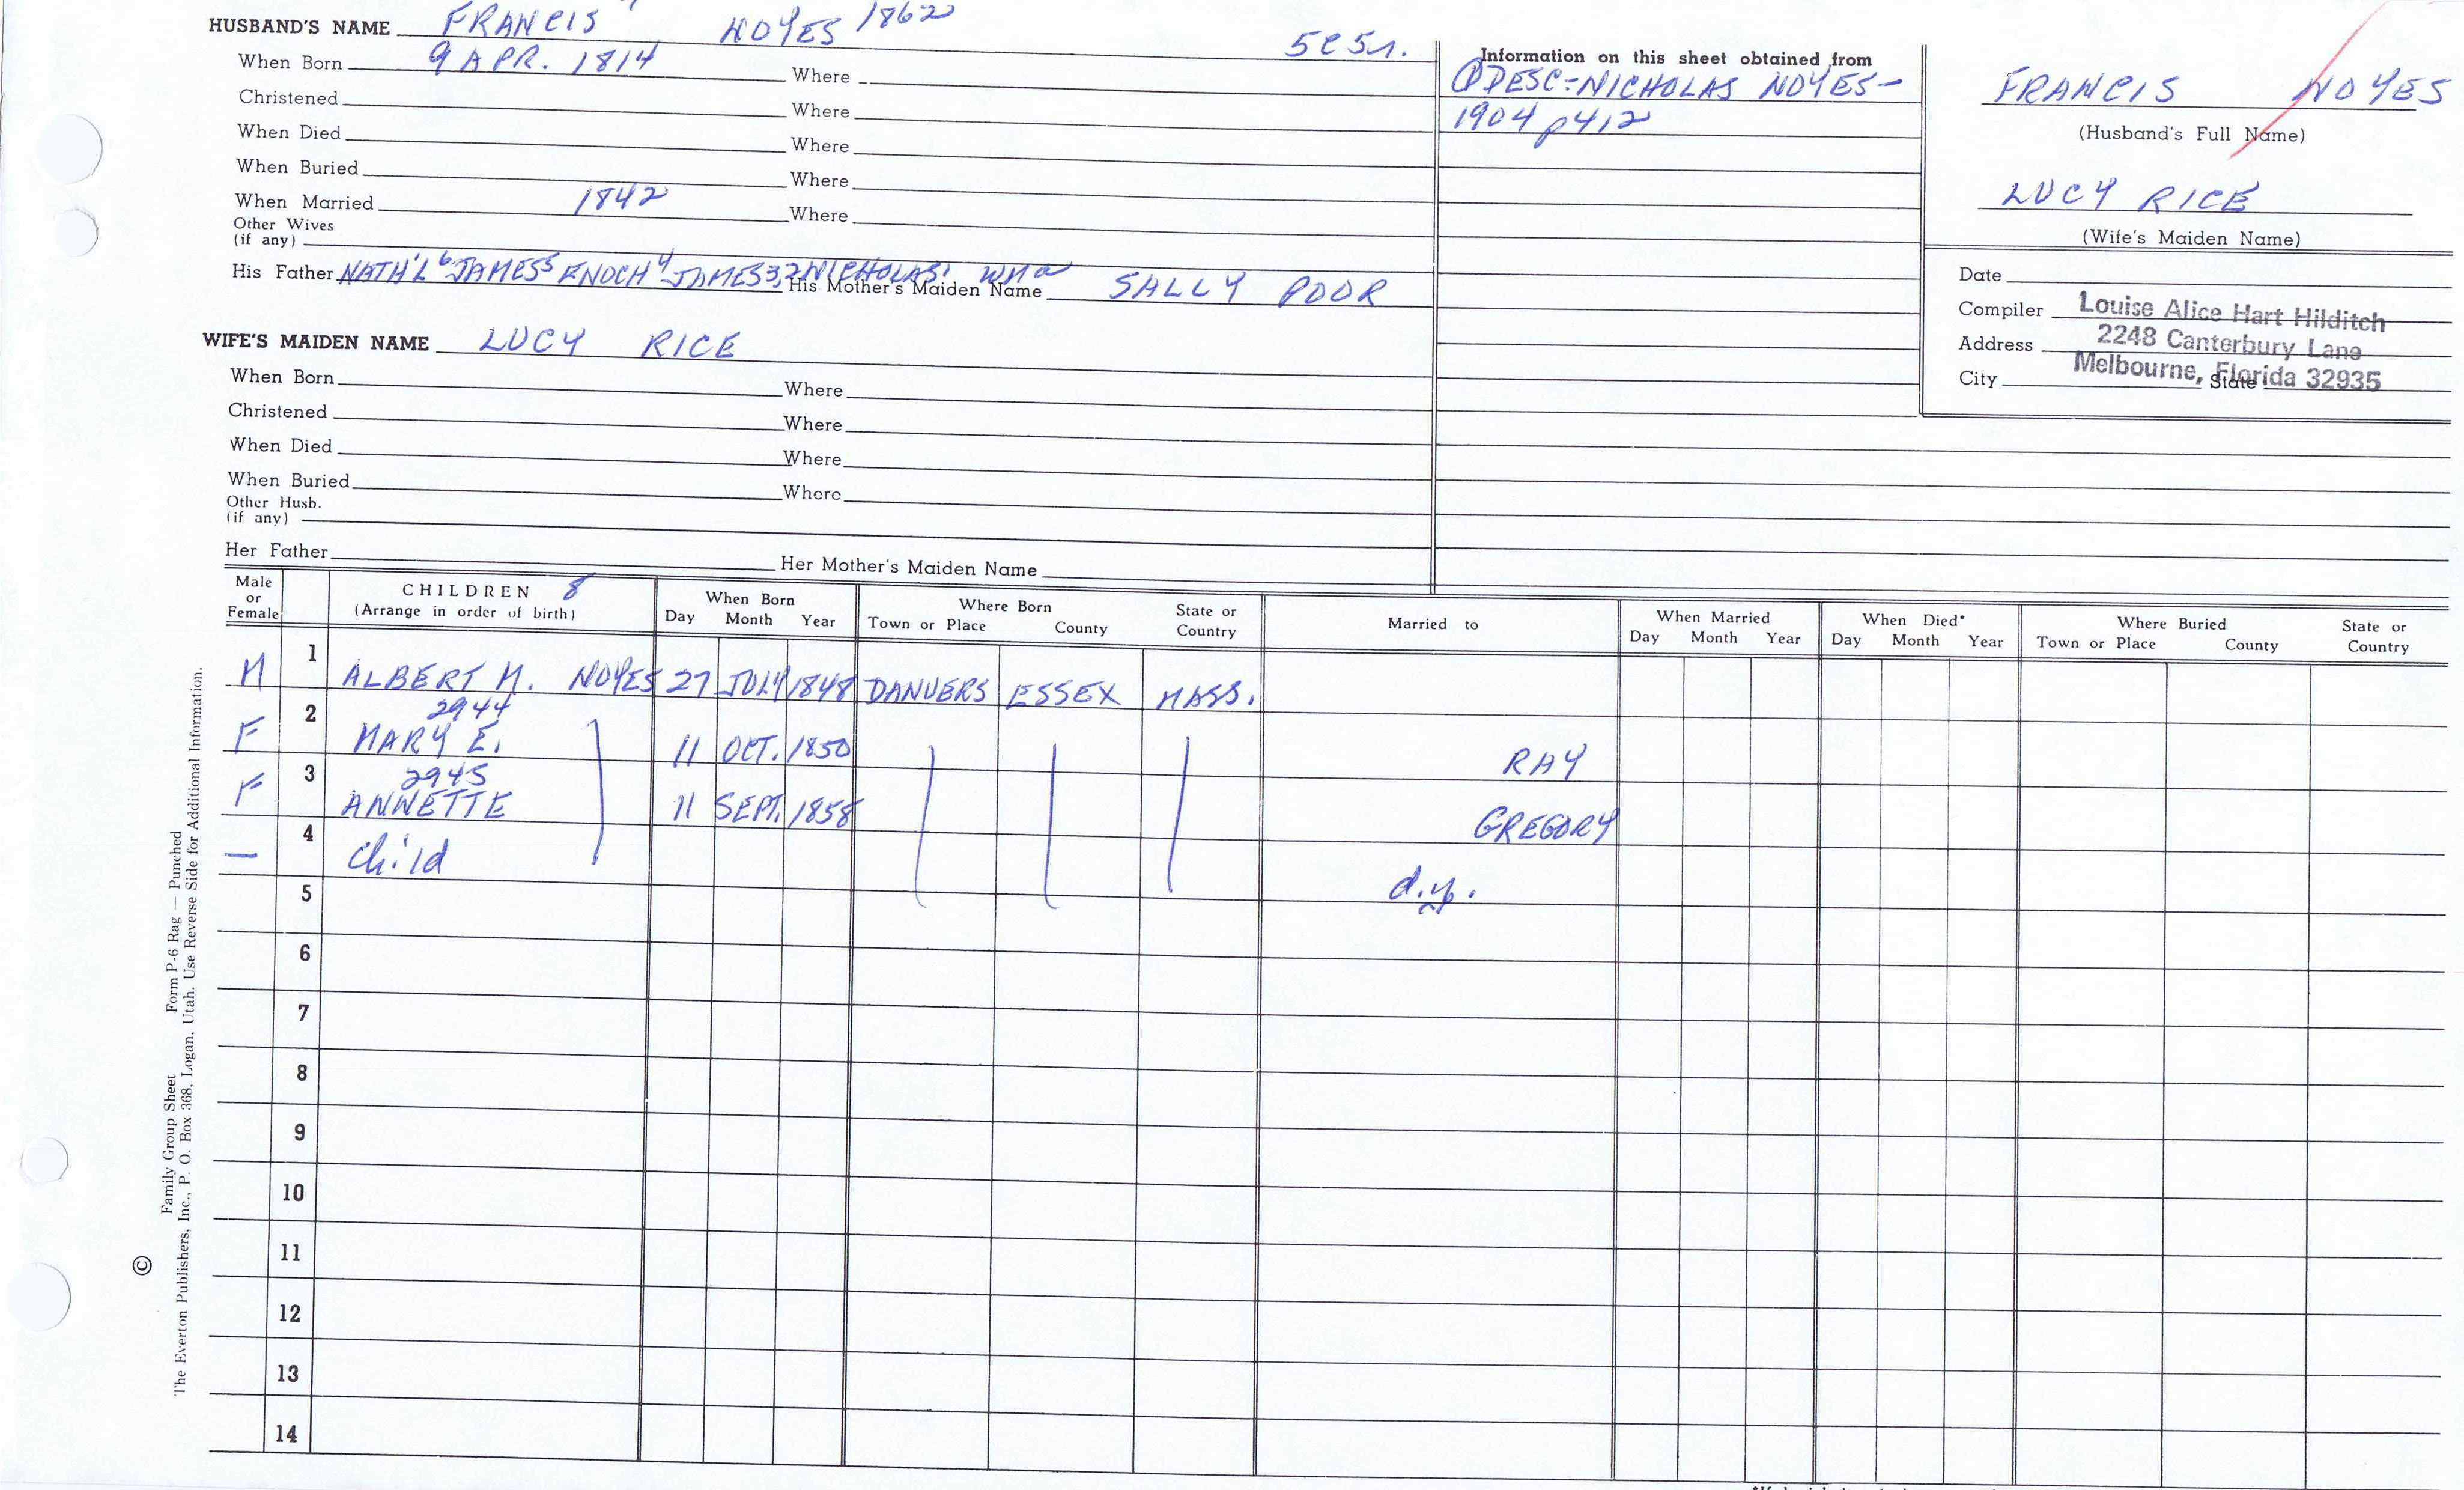 HUSBAND'S NAME FRANCIS NOYES 1862
5C5r.
When Born 9 APR. 1814 Where
Christened Where
When Died Where
When Buried Where
When Married 1842 Where
Other Wives
(if any)
His Father NATH'L 6 JAMES 5 ENOCH 4 JAMES 3, 2 NICHOLAS 1 Wm a His Mother's Maiden Name SALLY POOR
WIFE'S MAIDEN NAME LUCY RICE
When Born Where
Christened Where
When Died Where
When Buried Where
Other Husb.
(if any)
Her Father Her Mother's Maiden Name
Information on this sheet obtained from
① DESC-NICHOLAS NOYES-
1904 p412
FRANCIS NOYES
(Husband's Full Name)
LUCY RICE
(Wife's Maiden Name)
Date
Compiler Louise Alice Hart Hilditch
Address 2248 Canterbury Lane
City Melbourne, Florida 32935 State
Male or Female CHILDREN 8 (Arrange in order of birth) When Born Day Month Year Where Born Town or Place County State or Country Married to When Married Day Month Year When Died* Day Month Year Where Buried Town or Place County State or Country
M 1 ALBERT M. NOYES 27 JULY 1848 DANVERS ESSEX MASS.
2944
F 2 MARY E. 11 OCT. 1850 RAY
2945
F 3 ANNETTE 11 SEPT. 1858 GREGORY
— 4 child d.y.
5
6
7
8
9
10
11
12
13
14
Family Group Sheet Form P-6 Rag — Punched
© The Everton Publishers, Inc., P. O. Box 368, Logan, Utah. Use Reverse Side for Additional Information.